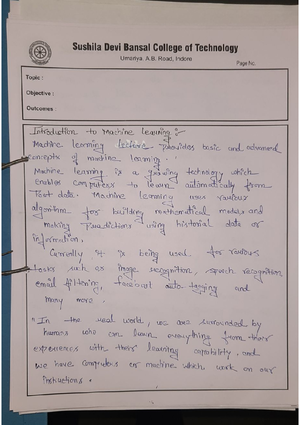 Sushila Devi Bansal College of Technology
Umariya, A.B. Road, Indore
Page No.
Topic :
Objective :
Outcomes :
Introduction to Machine Learning :-
Machine learning lecture provides basic and advanced
concepts of machine learning.
Machine learning is a growing technology which
enables computers to learn automatically from
Past data. Machine learning uses various
algorithm for building mathematical models and
making Predictions using historial data or
information.
Currently it is being used for various
tasks such as image recognition, speech recognition,
email filtering, facebook auto tagging and
many more.
In the real world, we are surrounded by
humans who can learn everything from their
experiences with their learning capability, and
we have computers or machine which work on our
instructions.